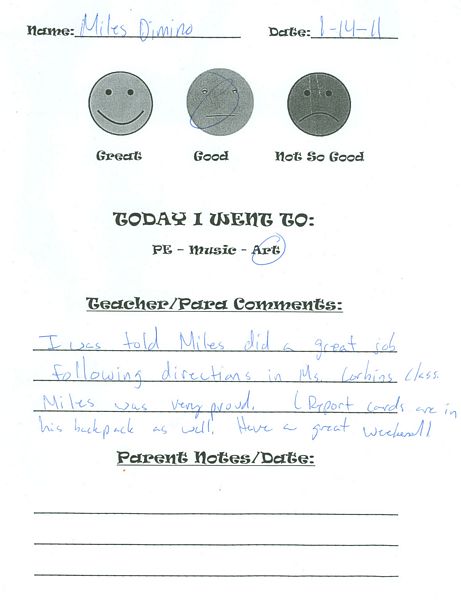 Name: Miles Dimino Date: 1-14-11
Great Good Not So Good
TODAY I WENT TO:
PE - Music - Art
Teacher/Para Comments:
I was told Miles did a great job
following directions in Ms. Corbins class.
Miles was very proud. (Report cards are in
his backpack as well. Have a great weekend!
Parent Notes/Date: